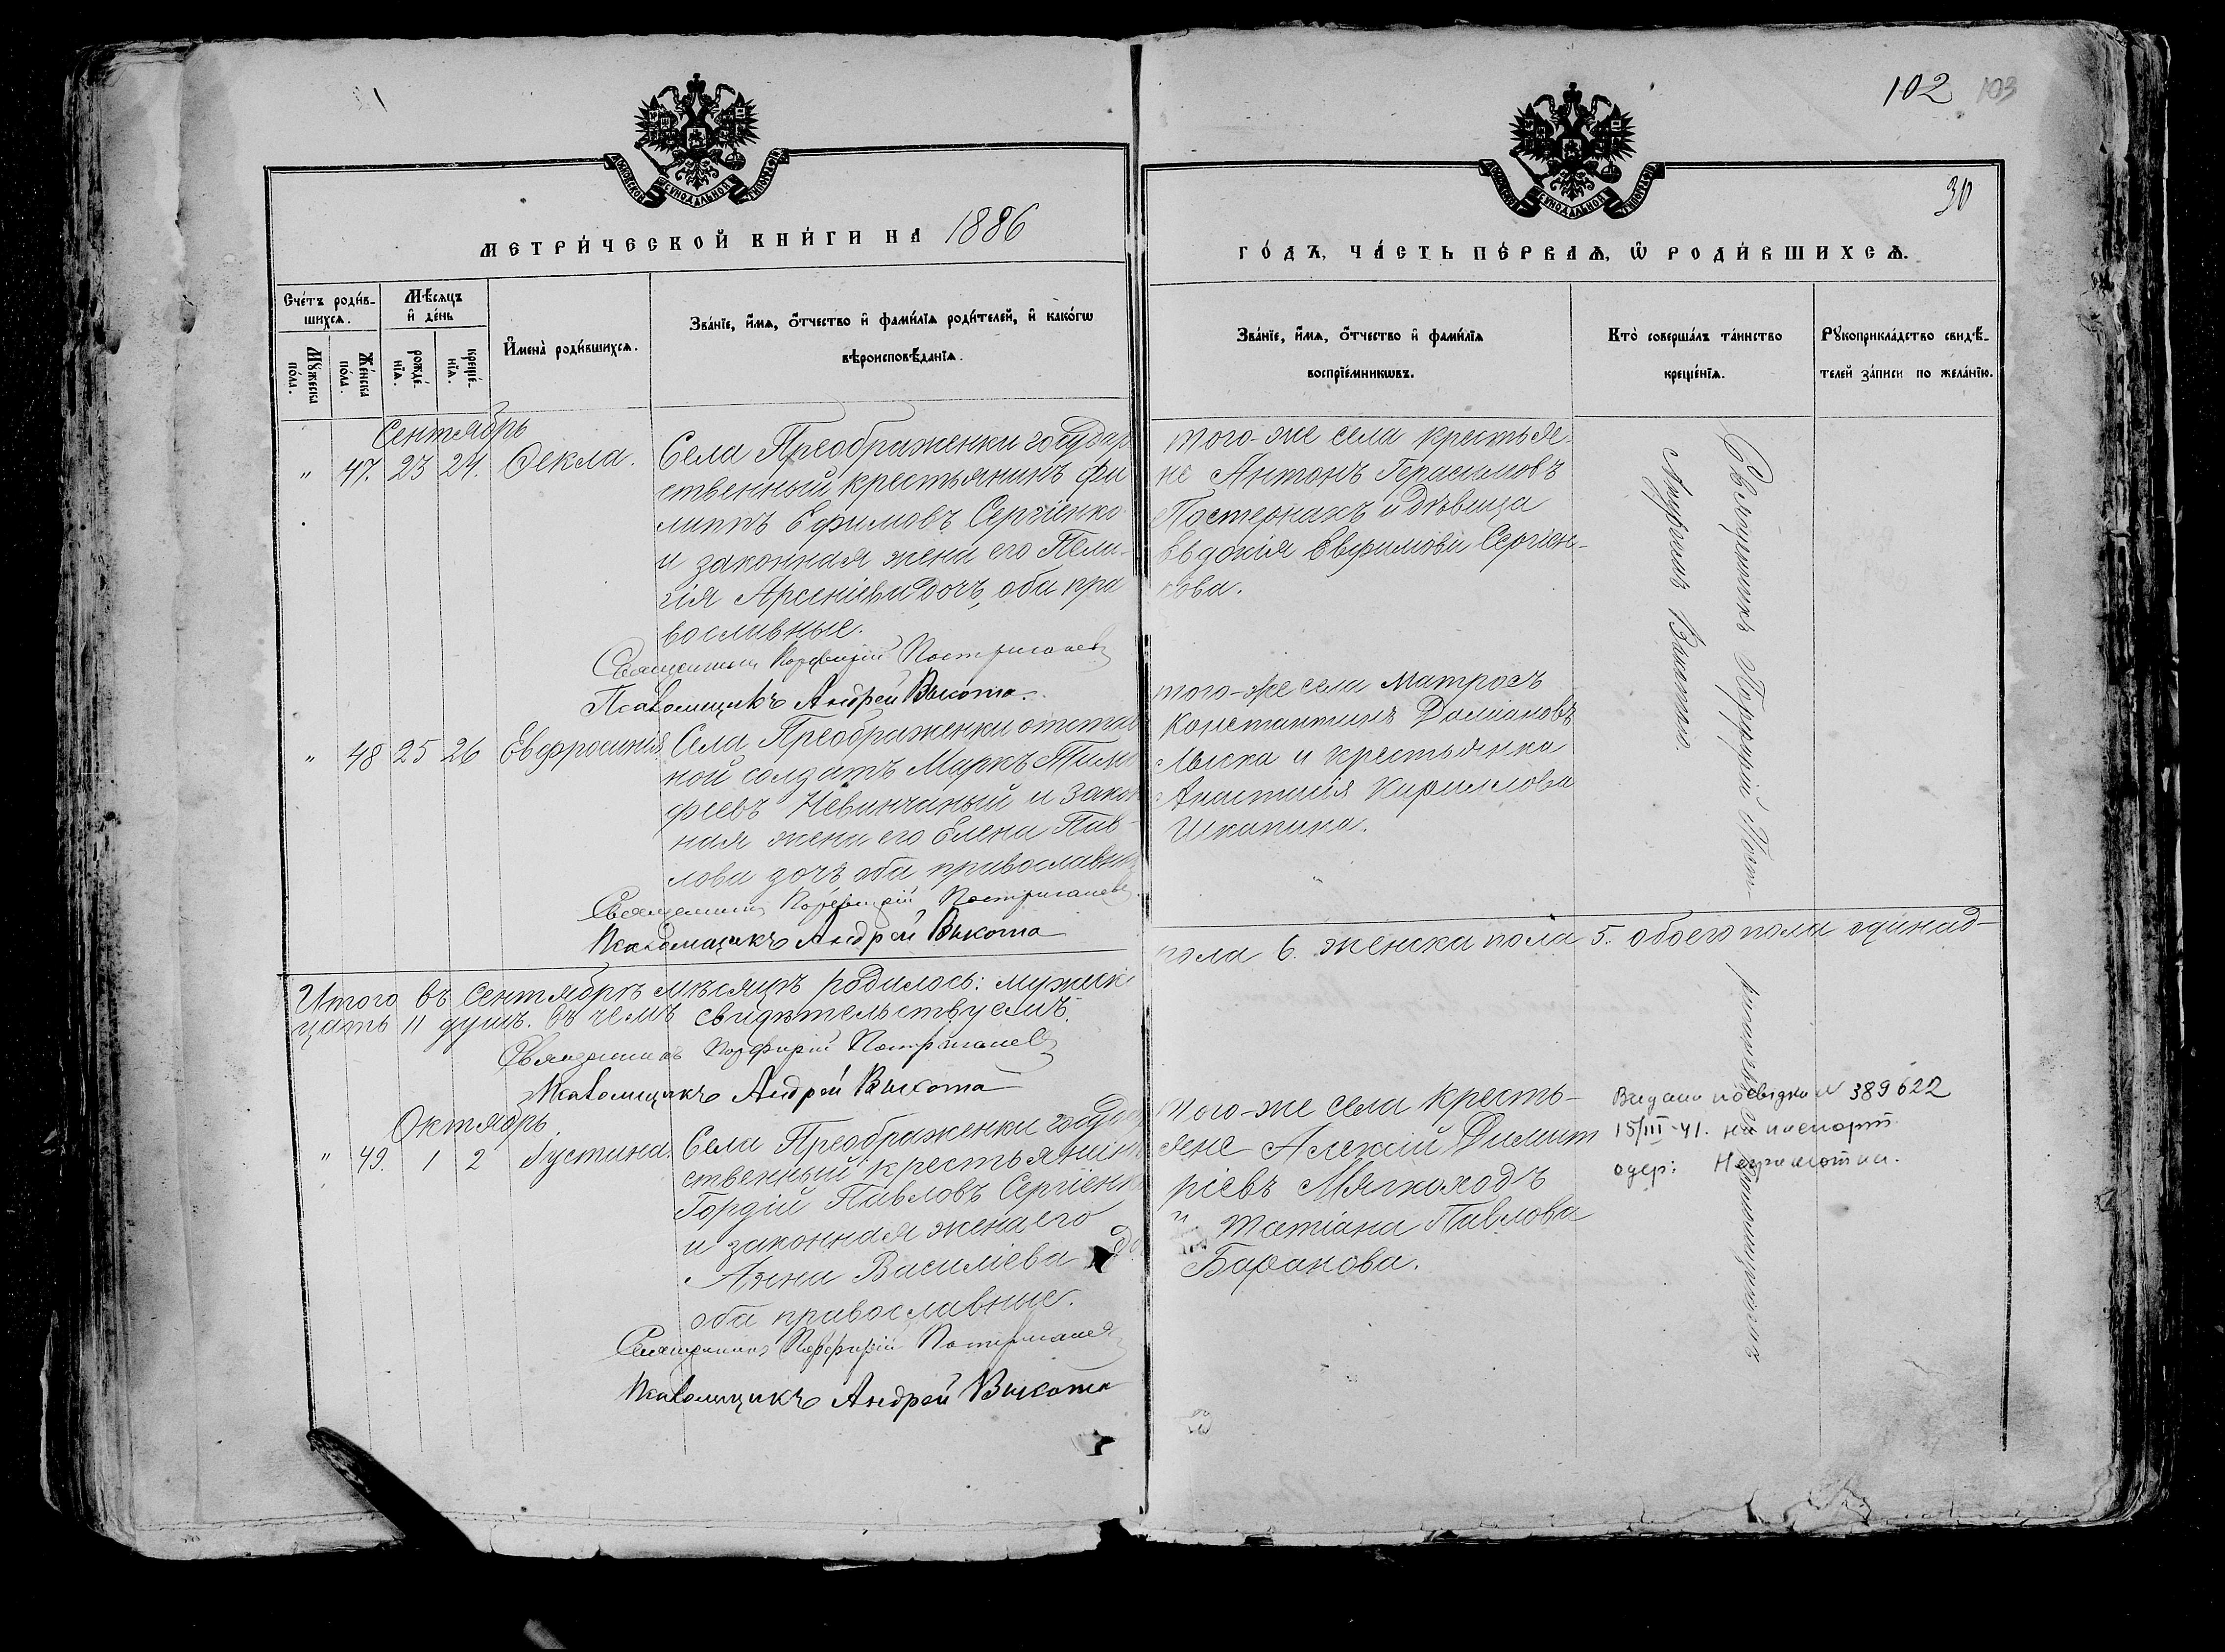 102 103
30
МЕТРИ́ЧЕСКОЙ КНИ́ГИ НА 1886
ГО́ДЪ, ЧА́СТЬ ПЕ́РВАѦ, Ѽ РОДИ́ВШИХСѦ.
Сче́тъ роди́вшихсѧ.
Мꙋ́жеска по́ла.
Же́нска по́ла.
Мѣ́сѧцъ и҆ де́нь
рожде́нїѧ.
креще́нїѧ.
И҆мена̀ роди́вшихсѧ.
Зва́нїе, и҆́мѧ, ѻ҆́тчество и҆ фами́лїѧ роди́телей, и҆ како́гѡ
вѣроисповѣ́данїѧ.
Зва́нїе, и҆́мѧ, ѻ҆́тчество и҆ фами́лїѧ
воспрїе́мникѡвъ.
Кто̀ соверша́лъ та́инство
креще́нїѧ.
Рꙋкоприкла́дство свидѣ́-
телей за́писи по жела́нїю.
Сентябрь
" 47. 23 24. Ѳекла.
Села Преображенки государ
ственный крестьянинъ Фи
липпъ Ефимовъ Сергіенко
и законная жена его Пела-
гія Арсеніева дочь, оба пра
вославные.
Священникъ Порфирій
Псаломщикъ Андрей Высота
того-же села крестья-
не Антонъ Герасимовъ
Постернакъ и дѣвица
Евдокія Евфимова Сергіен-
кова.
" 48 25 26 Евфросинія
Села Преображенки отстав
ной солдатъ Маркъ Тимо
феевъ Невинчаный и закон
ная жена его Елена Пав-
лова дочь оба православные
Священникъ Порфирій
Псаломщикъ Андрей Высота
того-же села матросъ
Константинъ Даміановъ
Лыска и крестьянка
Анастасія Кириллова
Шкапина.
Священникъ Порфирій
Андреемъ Высотою.
Итого въ Сентябрѣ мѣсяцѣ родилось: мужеска
пола 6. женска пола 5. обоего пола одинад-
цать 11 душъ. Въ чемъ свидѣтельствуемъ.
Священникъ Порфирій
Псаломщикъ Андрей Высота
Октябрь
" 49. 1 2 Іустина.
Села Преображенки государ
ственный крестьянинъ
Гордій Павловъ Сергіенко
и законная жена его
Анна Василіева
оба православные.
Священникъ Порфирій
Псаломщикъ Андрей Высота
того-же села кресть-
яне Алексій Димит
ріевъ Мягкоходъ
и Татіана Павлова
Баранова.
Видано посвідку № 389622
15/III-41. на паспорт
одер: